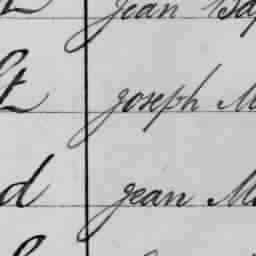 Jean Bap
t Joseph M
d Jean M